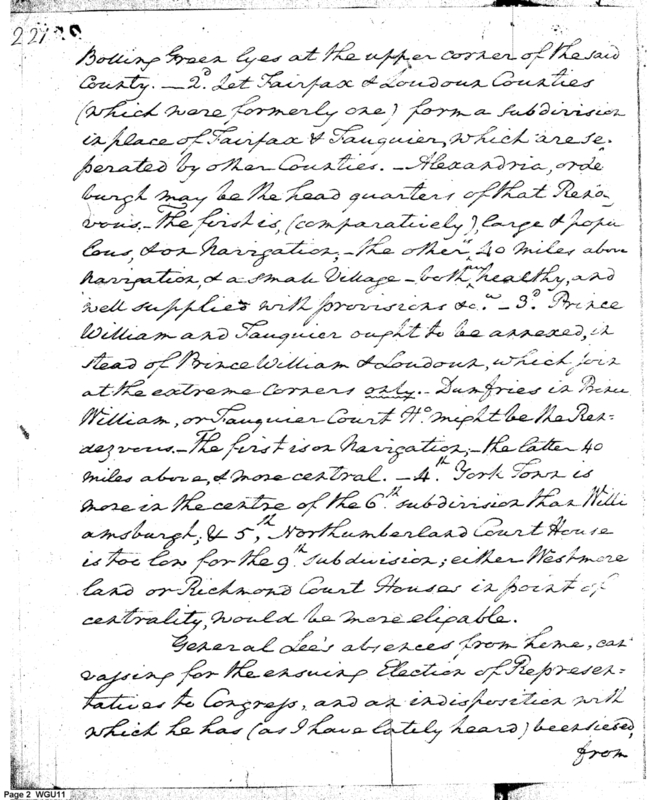 227
Bolling Green lyes at the upper corner of the said
County. — 2d. Let Fairfax & Loudoun Counties
(which were formerly one) form a subdivision
in place of Fairfax & Fauquier, which are se-
perated by other Counties. — Alexandria, or Le
burgh may be the head quarters of that Rend
vous. — The first is, (comparatively), large & popu
lous, & on Navigation, — the other 40 miles above
navigation, & a small Village — both healthy, and
well supplied with provisions &ca. — 3d. Prince
William and Fauquier ought to be annexed, in
stead of Prince William & Loudoun, which join
at the extreme corners only. — Dumfries in Prince
William, or Fauquier Court Ho. might be the Ren=
dezvous. — The first is on Navigation; — the latter 40
miles above, & more central. — 4th. York Town is
more in the centre of the 6th. subdivision than Willi
amsburgh; & 5th, Northumberland Court House
is too low for the 9th. subdivision; either Westmore
land or Richmond Court Houses in point of
centrality, would be more eligable.
General Lee's absences from home, can
vassing for the ensuing Election of Represen=
tatives to Congress, and an indisposition with
which he has (as I have lately heard) been siezed,
from
Page 2 WGU11